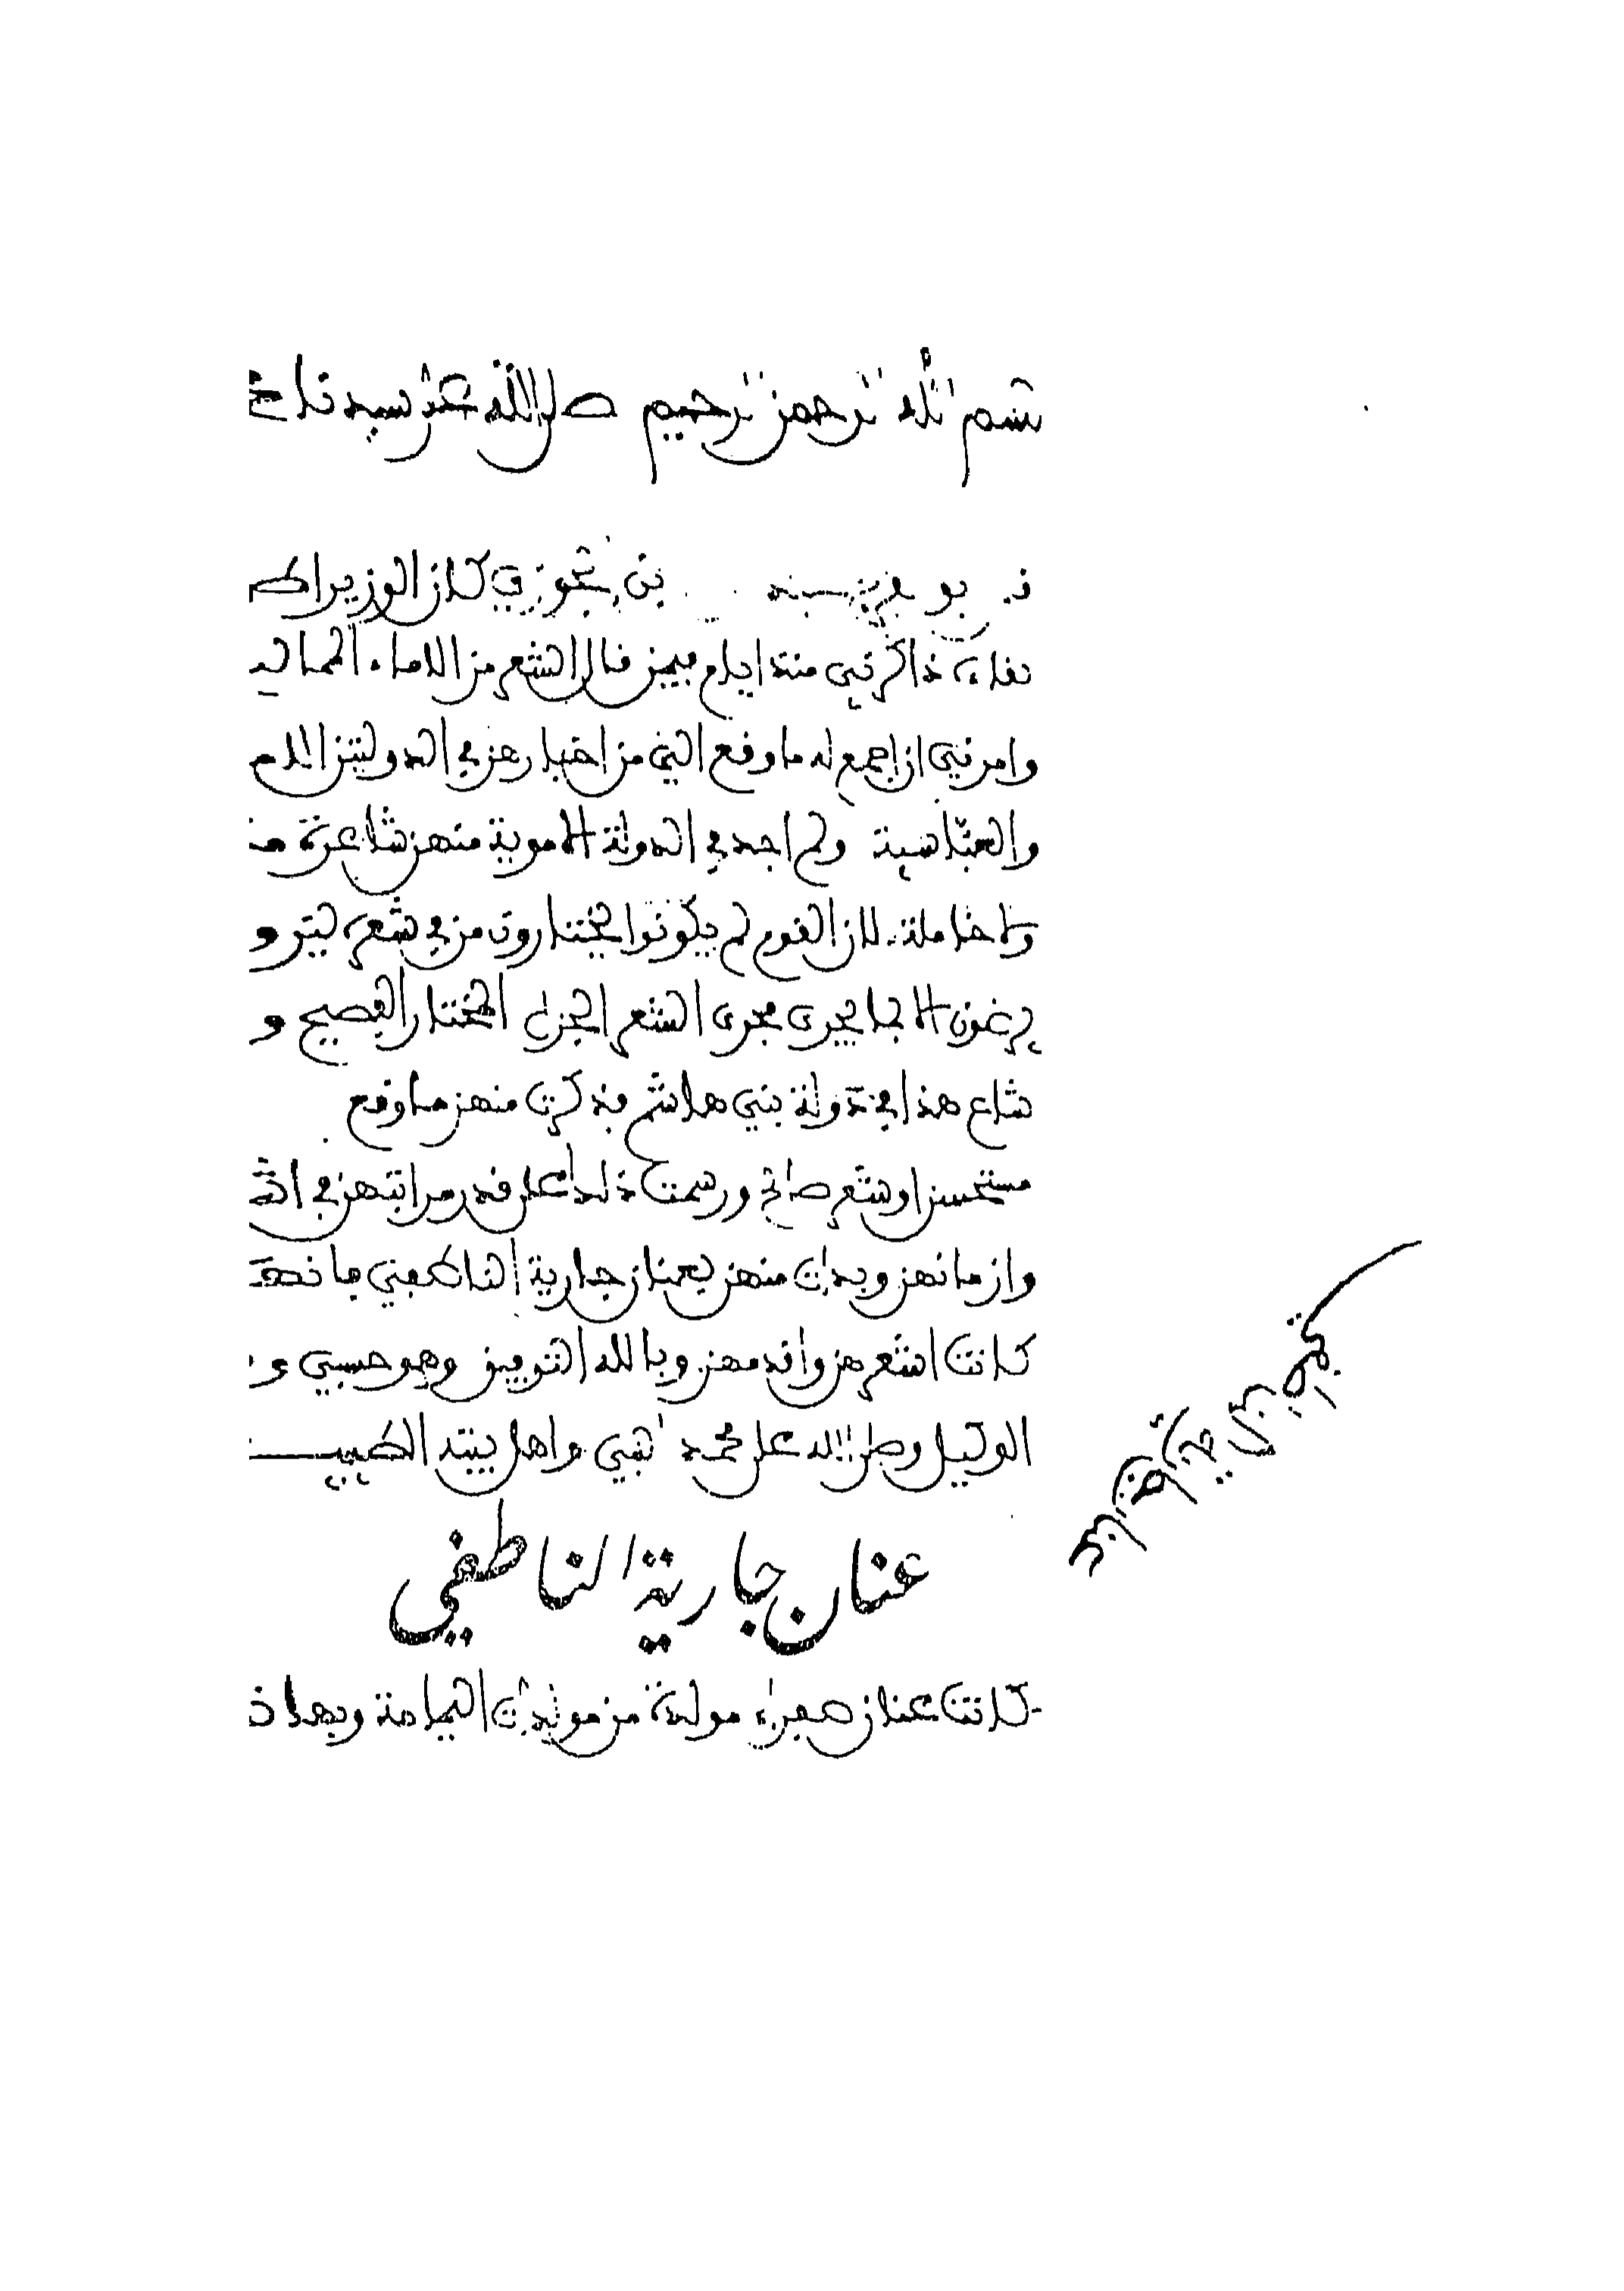 بسم الله الرحمن الرحيم صلى الله على سيدنا
بن الجوزي كان الوزير اط
بقاءه ذاكرني منذ ايام فيمن قال الشعر من الاماء المماليـ
وامرني ان اجمع له ما وقع الي من اخبارهن في الدولتين الام
والعباسية ولم اجد في الدولة الاموية منهن شاعرة مذ
ولا خاملة لان القوم لم يكونوا يختارون من في شعره لين و
يرغون الا بما يجرى مجرى الشعر الجزل المختار الفصيح و
شاع هذا في دولة بني هاشم فذكرت منهن ما وقع
مستحسن او شعر صالح ورسمت ذلك على قدر مراتبهن في الشـ
وازمانهن وبدات منهن بعنان جارية الناطفي فانهـ
كانت اشعرهن واقدمهن وبالله التوفيق وهو حسبي و
الوكيل وصلى الله على محمد النبي واهل بيته الطيبيـ
عنان جارية الناطفي
كانت عنان صفراء مولدة من مولدات اليمامة وبها نـ